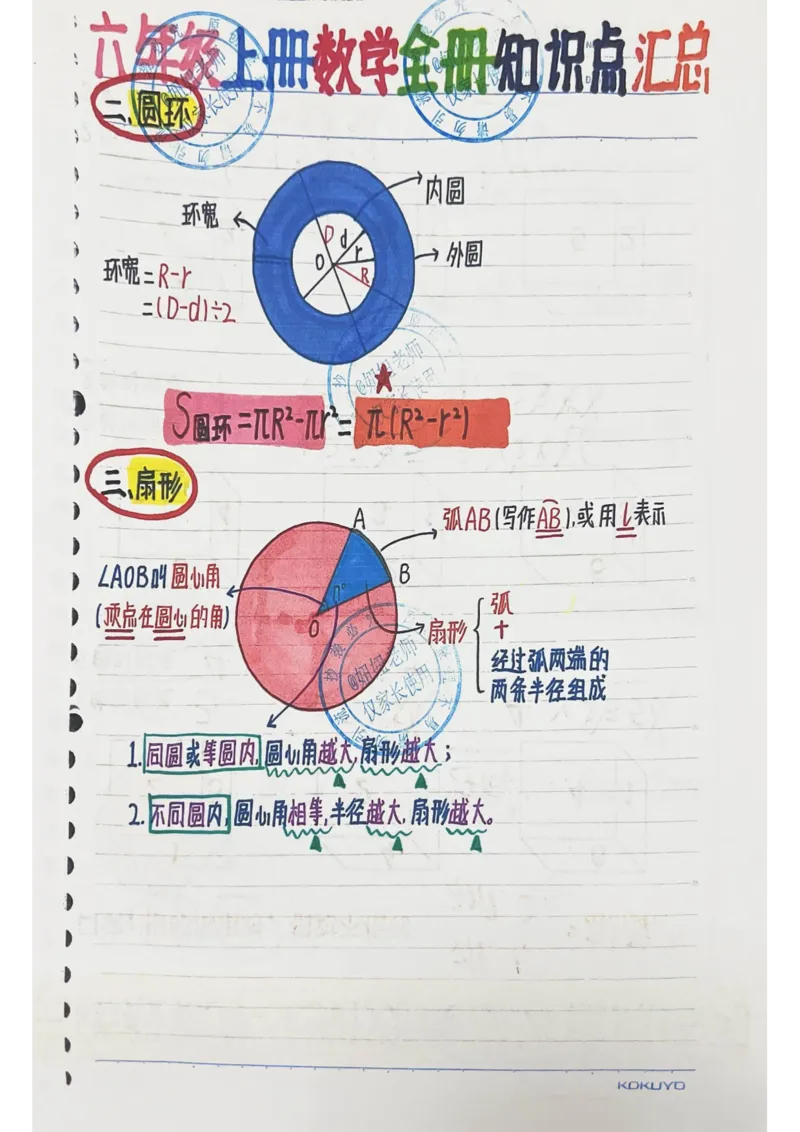 六年级上册数学全册知识点汇总
二、圆环
内圆
环宽
D d
O r
R
外圆
环宽=R-r
=(D-d)÷2
S圆环=πR²-πr²=π(R²-r²)
三、扇形
A
弧AB(写作AB),或用l表示
B
∠AOB叫圆心角
(顶点在圆心的角)
n°
O
扇形
弧
+
经过弧两端的
两条半径组成
1.同圆或等圆内,圆心角越大,扇形越大;
2.不同圆内,圆心角相等,半径越大,扇形越大。
@妍妲老师
仅家长使用
KOKUYO